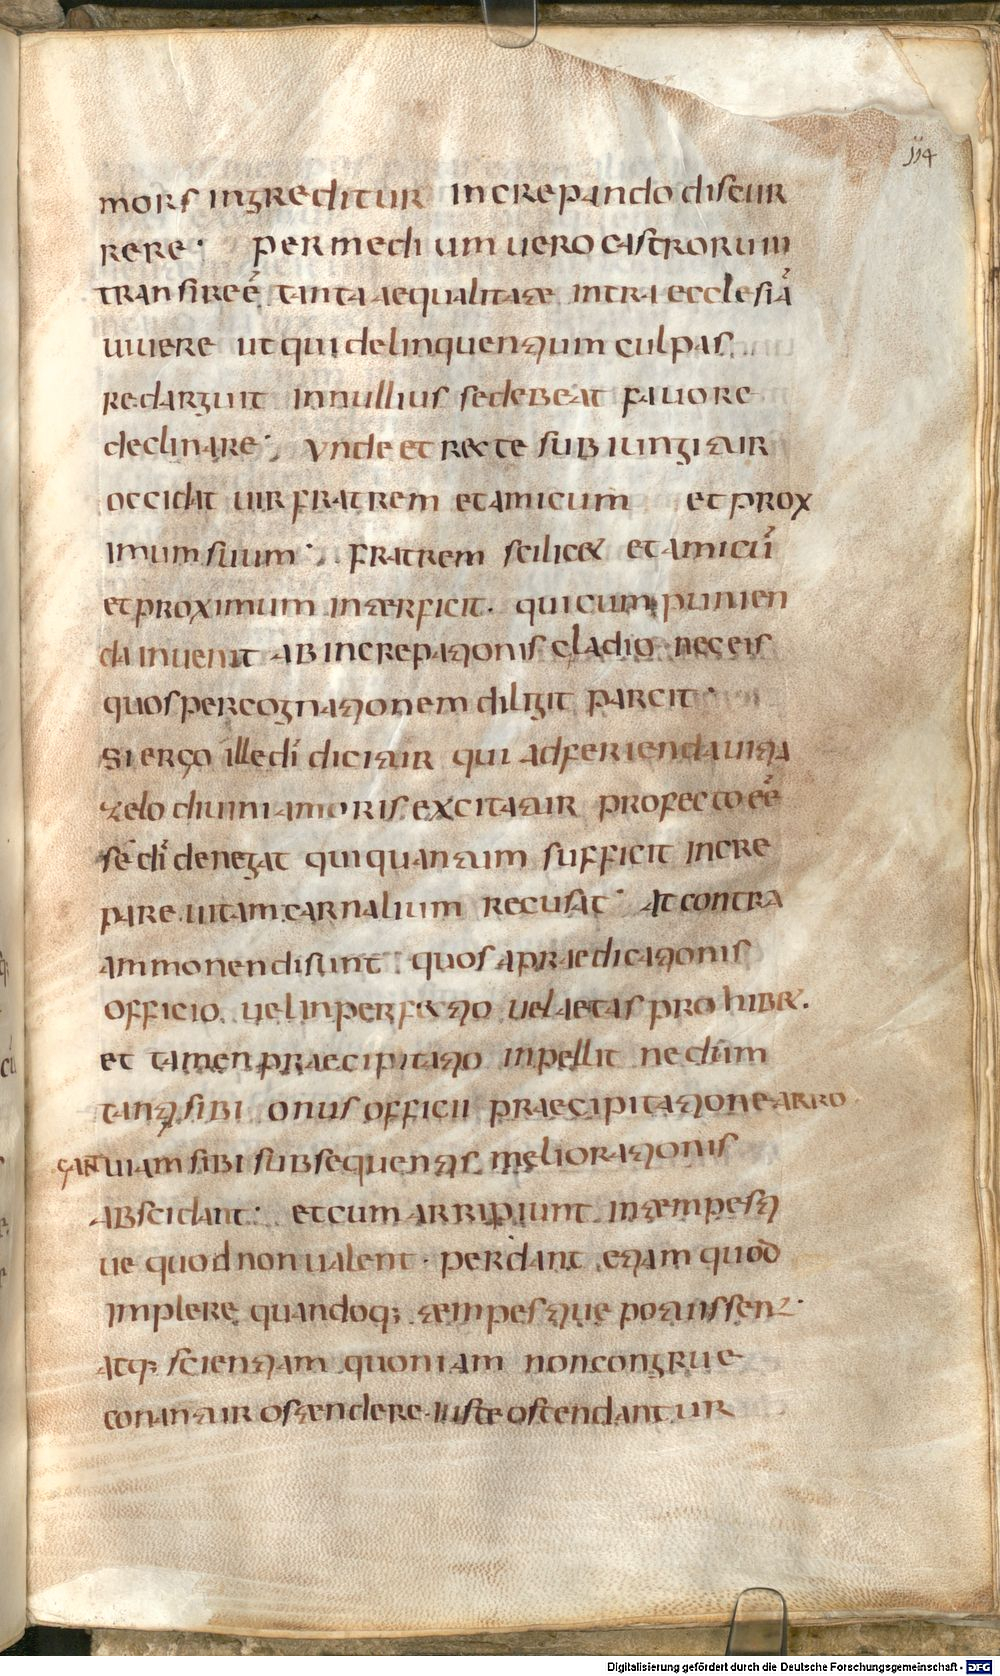 114
mors ingreditur increpando discur
rere· per medium uero castrorum
transire ē̕ tanta aequalitate intra ecclesiā̕
uiuere ut qui delinquentium culpas
redarguit in nullius se debeat fauore
declinare·, Unde et recte subiungitur
occidat uir fratrem et amicum et prox
imum suum·, fratrem scilicet et amicū̕
et proximum interficit· qui cum punien
da inuenit ab increpationis gladio nec eis
quos per cognationem diligit parcit·
Si ergo ille dī dicitur qui ad ferienda uitia
zelo diuini amoris excitatur profecto ēē̕
sē dī denegat qui quantum sufficit incre
pare uitam carnalium recusat· At contra
ammonendi sunt quos a praedicationis
officio uel inperfectio uel aetas prohibet·
et tamen praecipitatio inpellit ne dum
tanti sibi onus officii praecipitatione arro
gant uiam sibi subsequentis meliorationis
abscidant· et cum arripiunt intempesti
ue quod non ualent· perdant etiam quod
implere quandoq; tempestiue potuissent·
atq; scientiam quoniam non congrue
conantur ostendere iuste ostendantur
Digitalisierung gefördert durch die Deutsche Forschungsgemeinschaft - DFG